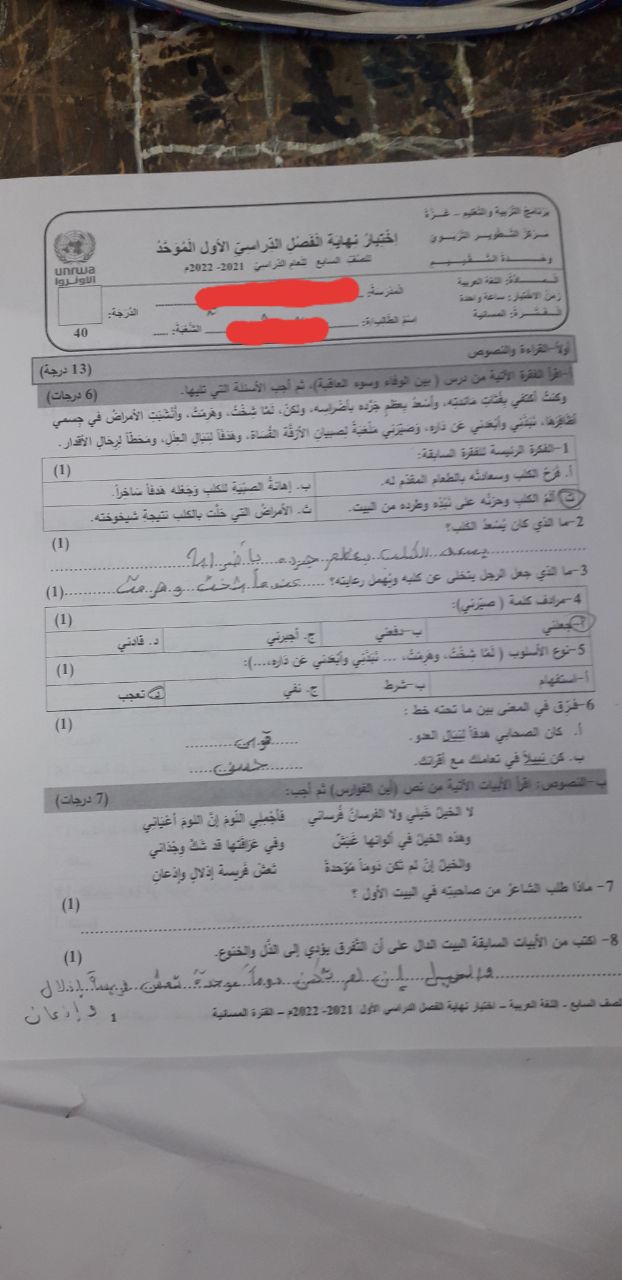 برنامج التربية والتعليم - غـزة
مركز التطوير التربوي
وحدة التقييم
المادة: اللغة العربية
زمن الاختبار: ساعة واحدة
الفترة: المسائية
اختبار نهاية الفصل الدراسي الأول الموحد
للصف السابع للعام الدراسي 2021- 2022م
المدرسة:
اسم الطالب/ة: الشعبة:
unrwa
الأونروا
الدرجة:
40
أولاً-القراءة والنصوص (13 درجة)
أ-اقرأ الفقرة الآتية من درس ( بين الوفاء وسوء العاقبة)، ثم أجب الأسئلة التي تليها. (6 درجات)
وكنتُ أكتفي بفُتاتِ مائدتِه، وأسْعدُ بعظمٍ جَرَّدَه بأضراسِه، ولكنْ، لمّا شخْتُ، وهَرِمْتُ، وأنْشَبَتِ الأمراضُ في جِسمي
أظافِرَها، نَبَذَني وأبْعدني عَن دَارِه، وصَيَّرني مَلْعَبةً لِصبيانِ الأزِقَّة القُساة، وهَدَفاً لِنِبَالِ العِلَلِ، ومَحَطاً لِرِحَالِ الأقْدار.
1-الفكرة الرئيسة للفقرة السابقة: (1)
أ. فرَحُ الكلب وسعادتُه بالطعام المقدَّم له.
ب. إهانةُ الصبْيَة للكلبِ وَجَعْله هَدفاً سَاخراً.
ت. ألمُ الكلبِ وحزنُه على نَبْذِه وطردِه من البيت.
ث. الأمراضُ التي حلّت بالكلب نتيجةِ شيخوخته.
2-ما الذي كان يُسْعدُ الكلب؟ (1)
يسعد الكلب بعظم جرده بأضراسه
3-ما الذي جعل الرجل يتخلى عن كلبه ويُهمل رعايته؟ عندما شخت وهرمت (1)
4-مرادف كلمة ( صيّرني): (1)
أ-جعلني ب-دفعني ج. أجبرني د. قادني
5-نوع الأسلوب ( لمّا شِخْتُ، وهَرِمْتُ، ... نَبَذَني وأبْعَدني عَن دَاره،...): (1)
أ-استفهام ب-شرط ج. نفي د. تعجب
6-فرّق في المعنى بين ما تحته خط : (1)
أ. كان الصحابي هدفاً لنِبَال العدو.
ب. كن نبيلاً في تعاملك مع أقرانك.
ب-النصوص: اقرأ الأبيات الآتية من نص (أين الفوارس) ثم أجب: (7 درجات)
لا الخيلُ خَيلي ولا الفرسانُ فُرساني فأجْملِي اللّومَ إنَّ اللومَ أعْيَاني
وهذه الخيلُ في ألوانها غَبَشٌ وفي عَرَاقتَها قد شكَّ وِجْدَاني
والخيلُ إنْ لم تكن دَوماً مُوَحّدةً تَعشْ فَريسةَ إذلالٍ وإذعانِ
7- ماذا طلب الشاعرُ من صاحبته في البيت الأول ؟ (1)
8- اكتب من الأبيات السابقة البيت الدال على أن التَّفرق يؤدي إلى الذّل والخنوع. (1)
والخيل إن لم تكن دوماً موحدة تعش فريسة إذلال
وإذعان
لصف السابع - اللغة العربية – اختبار نهاية الفصل الدراسي الأول 2021- 2022م – الفترة المسائية 1